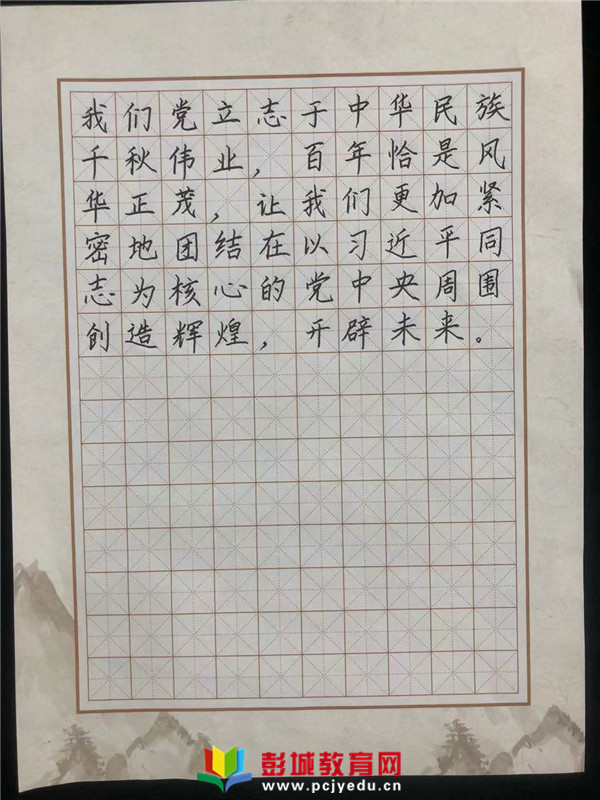 我们党立志于中华民族
千秋伟业，百年恰是风
华正茂，让我们更加紧
密地团结在以习近平同
志为核心的党中央周围
创造辉煌，开辟未来。
彭城教育网
www.pcjyedu.cn